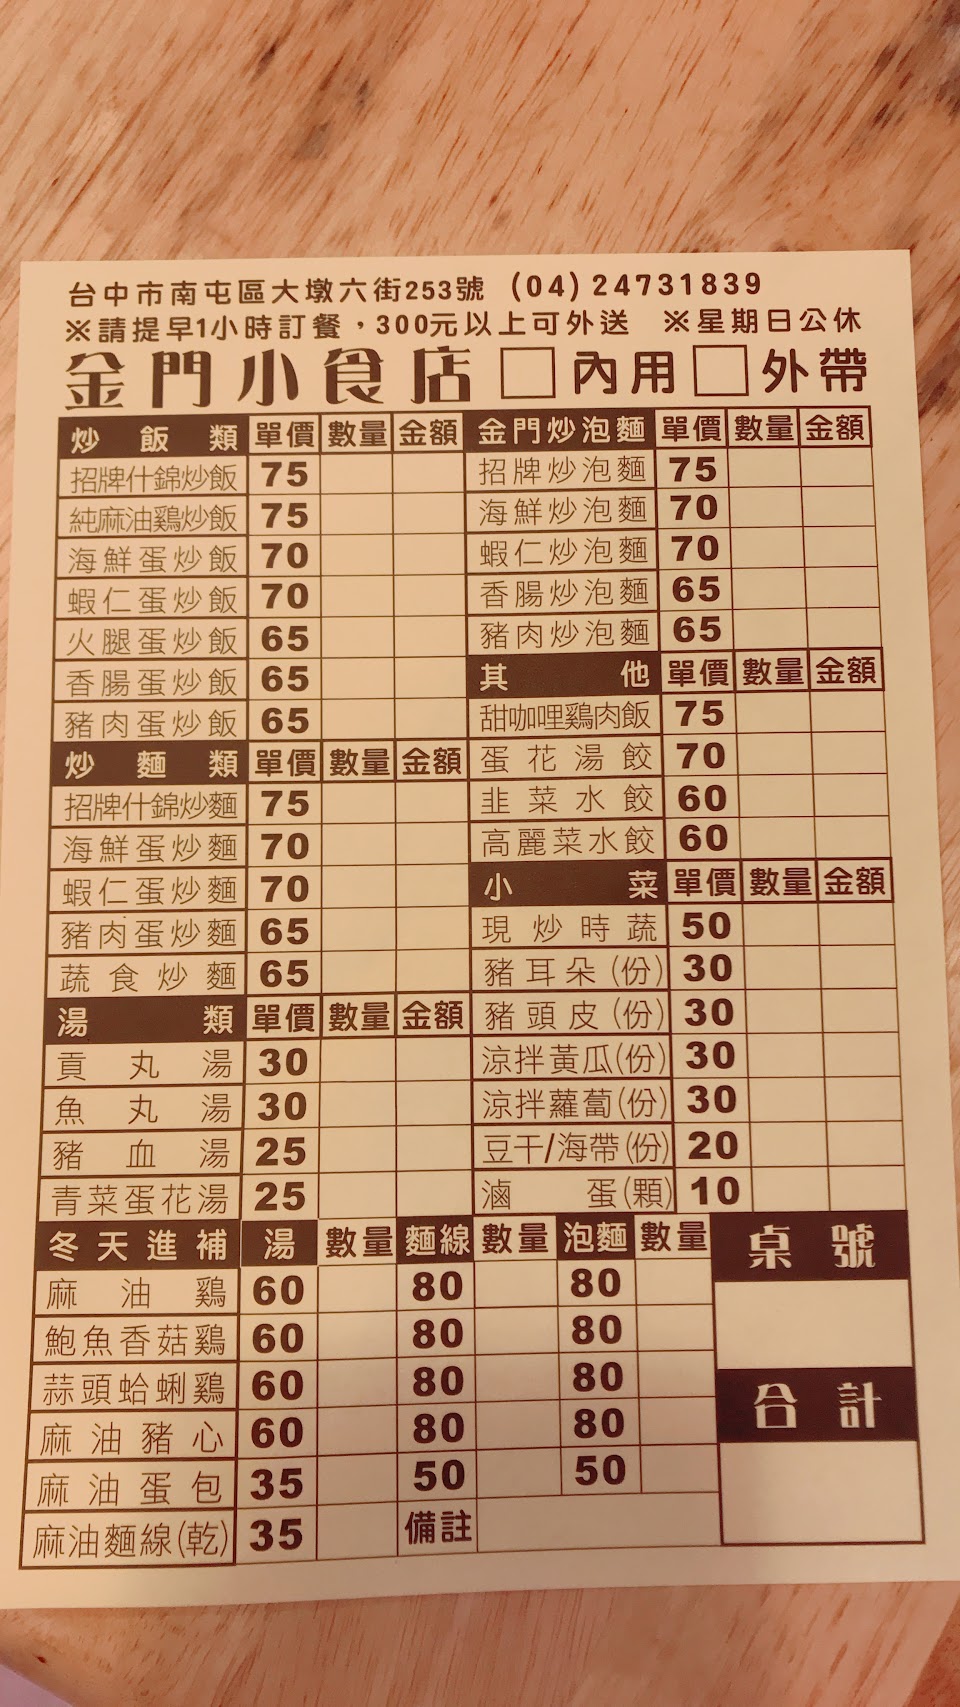 台中市南屯區大墩六街253號 (04) 24731839
※請提早1小時訂餐，300元以上可外送 ※星期日公休
金門小食店 □內用 □外帶
炒飯類 單價 數量 金額
招牌什錦炒飯 75
純麻油鷄炒飯 75
海鮮蛋炒飯 70
蝦仁蛋炒飯 70
火腿蛋炒飯 65
香腸蛋炒飯 65
豬肉蛋炒飯 65
炒麵類 單價 數量 金額
招牌什錦炒麵 75
海鮮蛋炒麵 70
蝦仁蛋炒麵 70
豬肉蛋炒麵 65
蔬食炒麵 65
湯類 單價 數量 金額
貢丸湯 30
魚丸湯 30
豬血湯 25
青菜蛋花湯 25
金門炒泡麵 單價 數量 金額
招牌炒泡麵 75
海鮮炒泡麵 70
蝦仁炒泡麵 70
香腸炒泡麵 65
豬肉炒泡麵 65
其他 單價 數量 金額
甜咖哩鷄肉飯 75
蛋花湯餃 70
韭菜水餃 60
高麗菜水餃 60
小菜 單價 數量 金額
現炒時蔬 50
豬耳朵(份) 30
豬頭皮(份) 30
涼拌黃瓜(份) 30
涼拌蘿蔔(份) 30
豆干/海帶(份) 20
滷蛋(顆) 10
冬天進補 湯 數量 麵線 數量 泡麵 數量
麻油鷄 60 80 80
鮑魚香菇鷄 60 80 80
蒜頭蛤蜊鷄 60 80 80
麻油豬心 60 80 80
麻油蛋包 35 50 50
麻油麵線(乾) 35 備註
桌號
合計